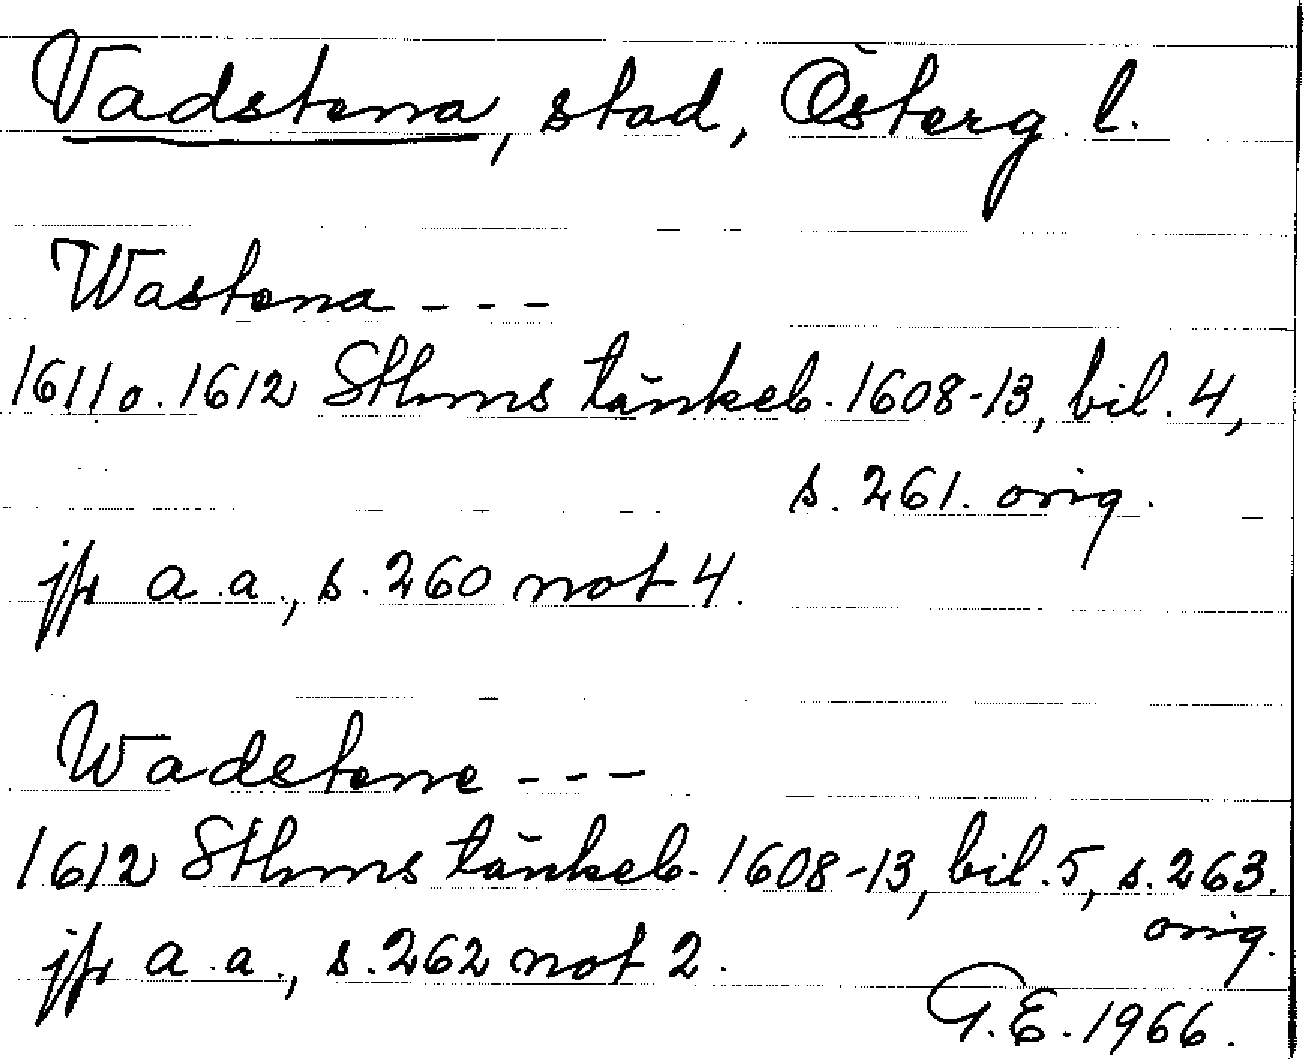 Vadstena, stad, Österg. l.
Wastena - - -
1611 o. 1612 Sthms tänkeb. 1608-13, bil. 4,
s. 261. orig.
jfr a.a., s. 260 not 4.
Wadstene - - -
1612 Sthms tänkeb. 1608-13, bil. 5, s. 263.
orig.
jfr a.a., s. 262 not 2.
G.E. 1966.